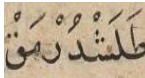 طَلَشْدُرْمَقْ